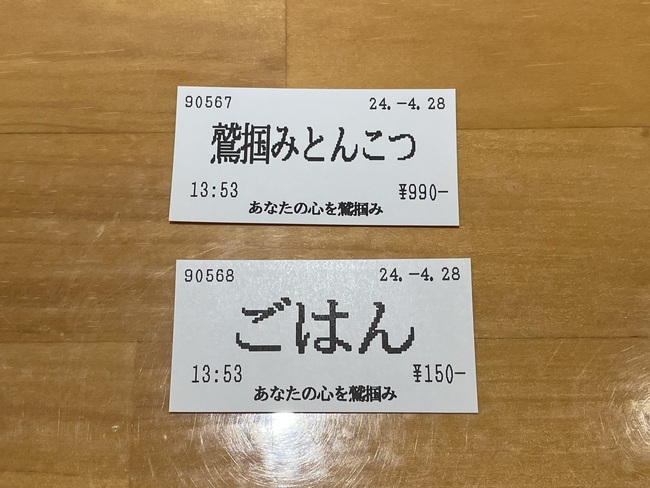 90567 24.-4.28
鷲掴みとんこつ
13:53 ¥990-
あなたの心を鷲掴み
90568 24.-4.28
ごはん
13:53 ¥150-
あなたの心を鷲掴み